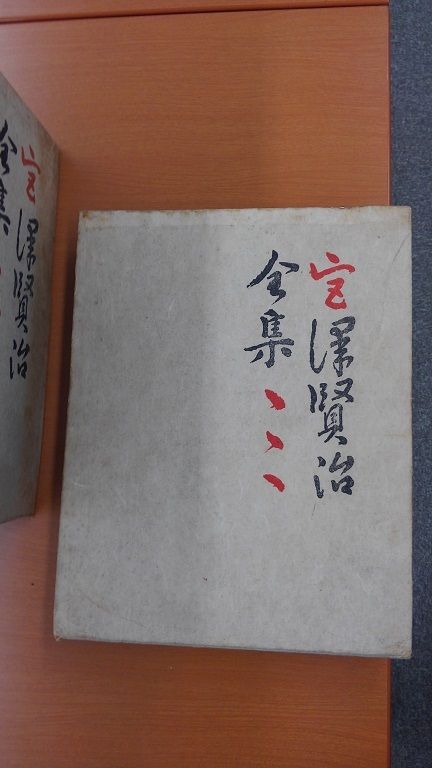 宮澤賢治
全集、、、
宮澤賢治
全集、、